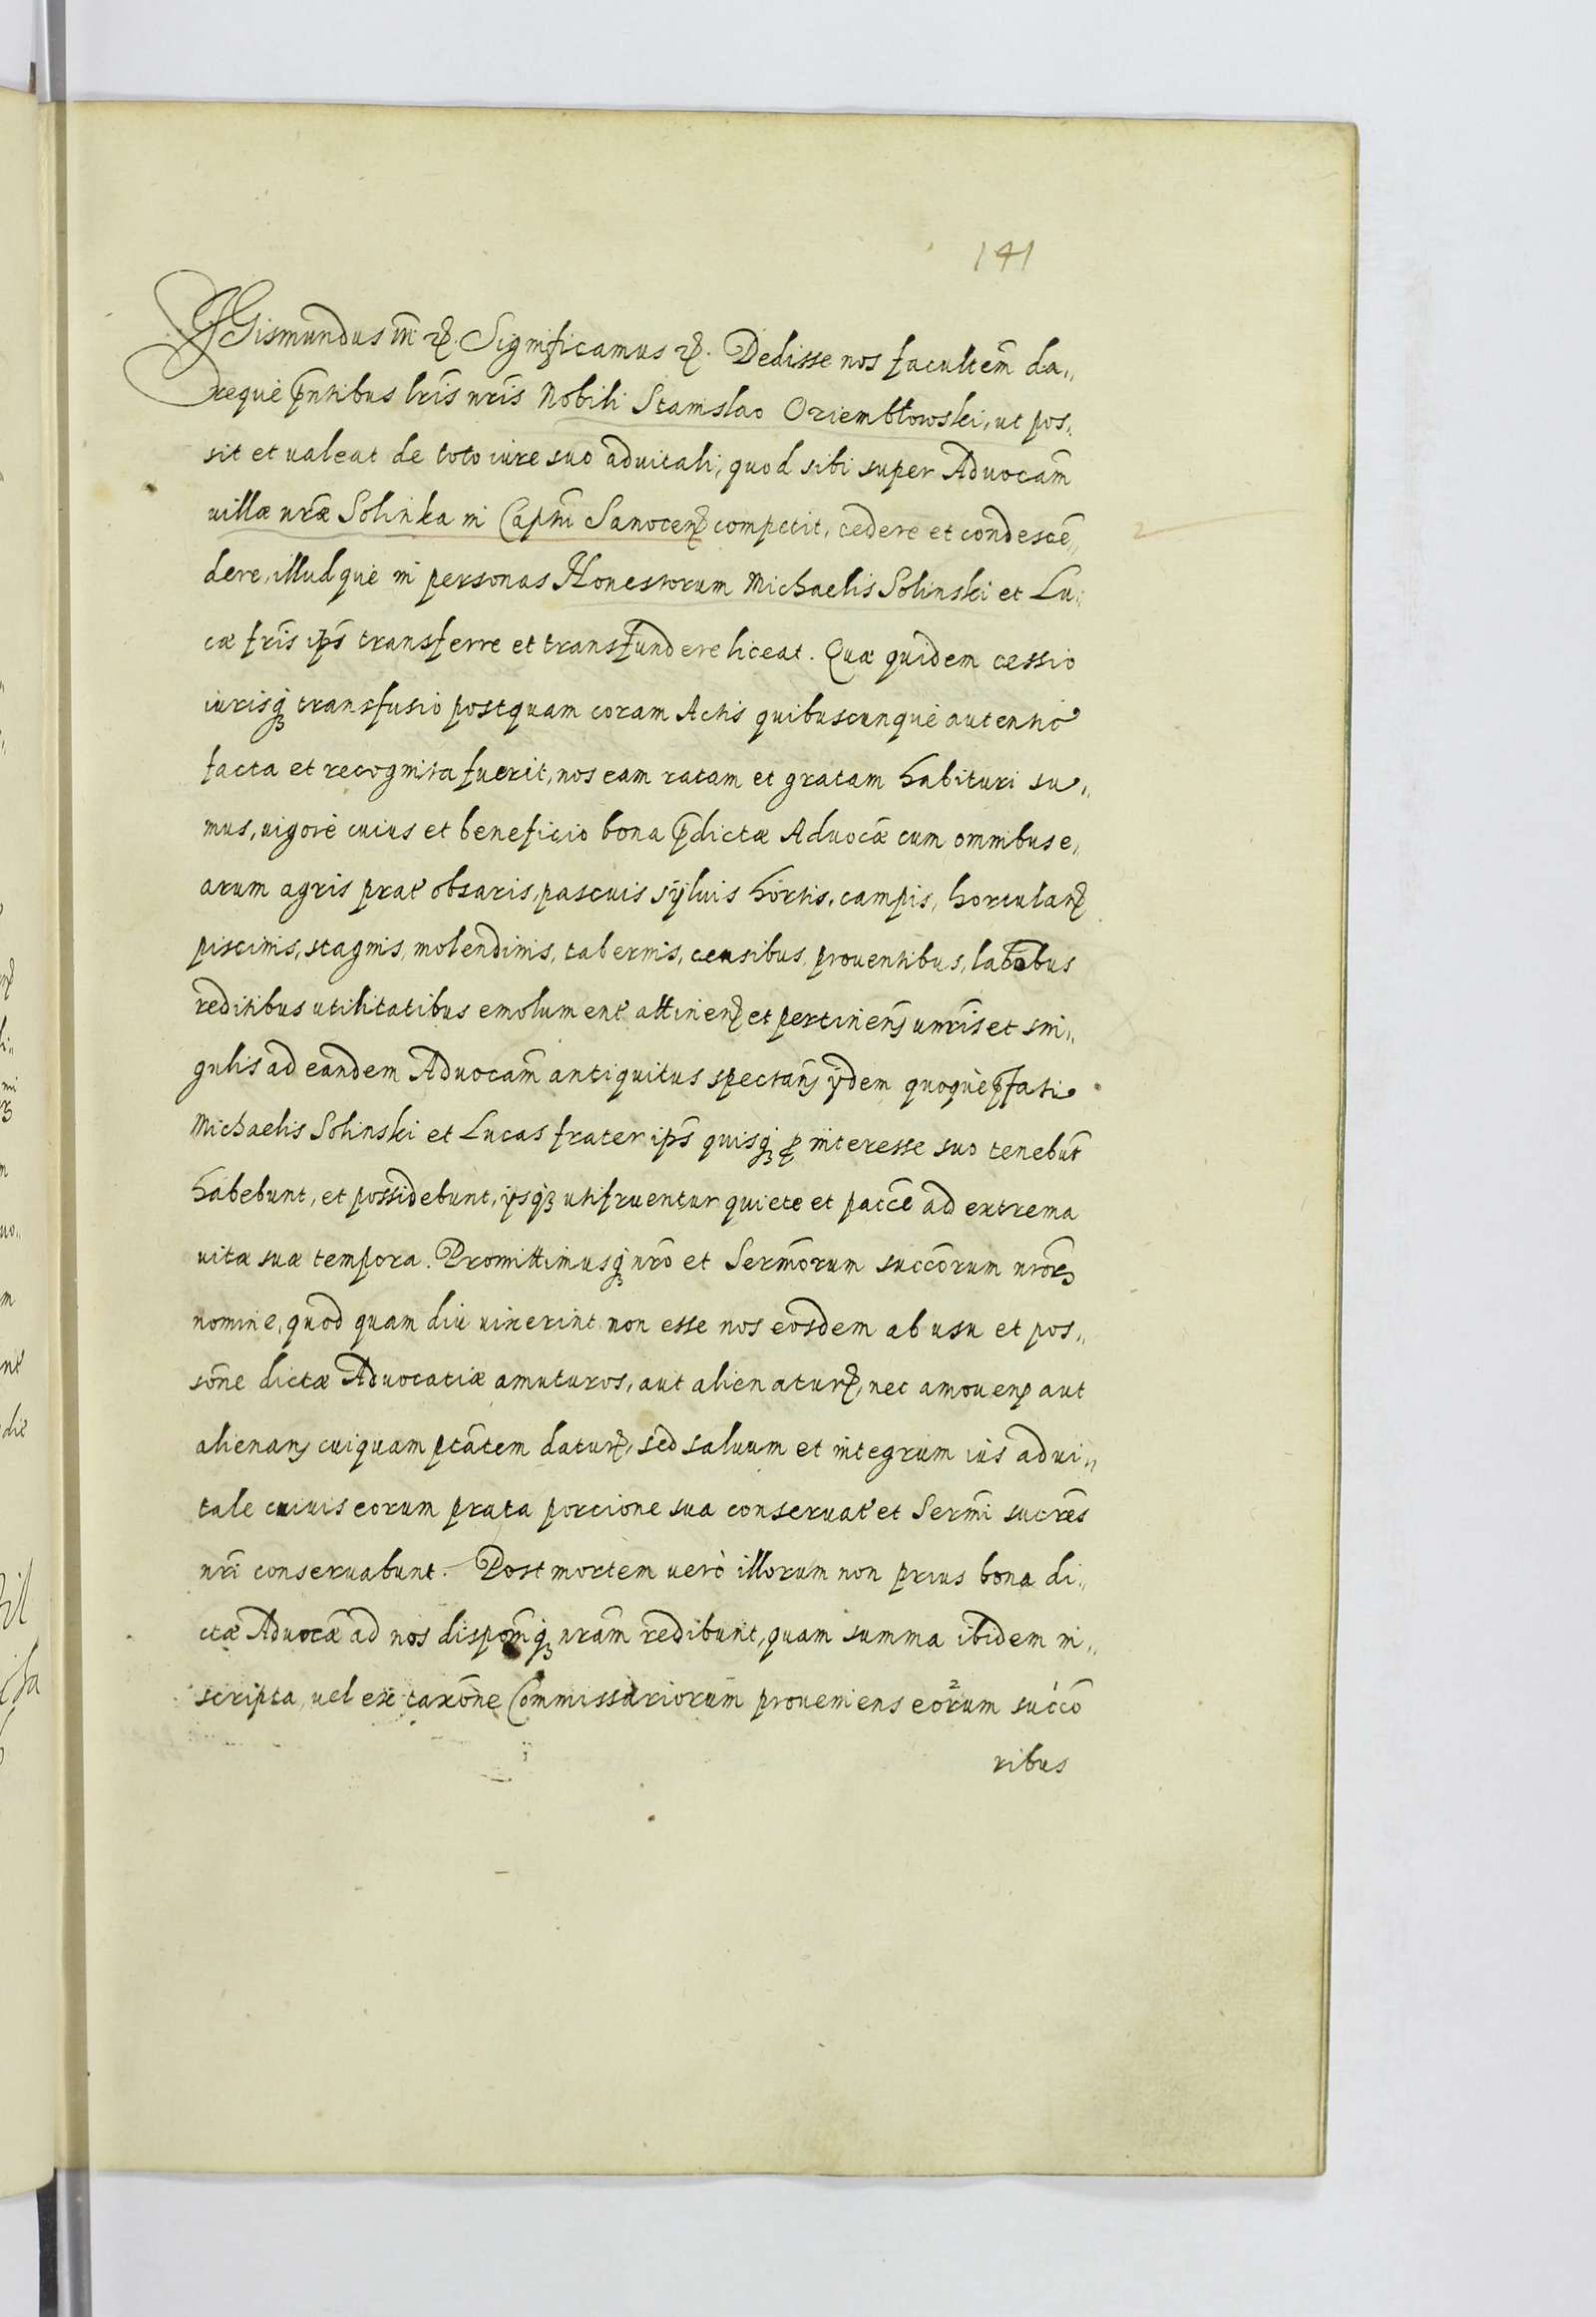 141
Sigismundus III etc. Significamus etc. Dedisse nos facultem̃ da„
reque p̃ntibus lris̃ nris̃ Nobili Stanislao Oziembłowski, ut pos„
sit et ualeat de toto iure suo aduitali, quod sibi super Aduocam̃
uillæ nræ̃ Solinka in Captñi Sanoceñ competit, cedere et condescẽ„
dere, illudque in personas Honestorum Michaelis Solinski et Lu„
cæ fris̃ ips̃ transferre et transfundere liceat. Quæ quidem cessio
iurisq; transfusio postquam coram Actis quibuscunque autentic̃
facta et recognita fuerit, nos eam ratam et gratam habituri su„
mus, uigore cuius et beneficio bona p̃dictæ Aduocæ̃ cum omnibus e„
arum agris prat' obsaris, pascuis sÿluis hortis, campis, hortulañ
piscinis, stagnis, molendinis, tabernis, censibus, prouentibus, labõbus
reditibus utilitatibus emolument' attineñ et pertineñ uniuris̃ et sin„
gulis ad eandem Aduocam̃ antiquitus spectañ ÿdem quoque p̃fati
Michaelis Solinski et Lucas frater ips̃ quisq; p interesse suo tenebut̃
habebunt, et possidebunt, ÿsq; utifruentur quiete et paccẽ ad extrema
uitæ suæ tempora. Promittimusq; nrõ et Sermõrum succõrum nrõr
nomine, quod quam diu uixerint non esse nos eosdem ab usu et pos„
sõne dictæ Aduocatiæ amuturos, aut alienatur, nec amoueñ aut
alienañ cuiquam ptãtem datur, sed saluum et integrum ius adui„
tale cuiuis eorum prata porcione sua conseruat' et Sermĩ sucrẽs
nrĩ conseruabunt. Post mortem uerò illorum non prius bona di„
ctæ Aduocæ̃ ad nos dispom̃q; nram̃ redibunt, quam summa ibidem in„
scripta, uel ex taxõne Commissariorum proueniens eorum succõ
ribus